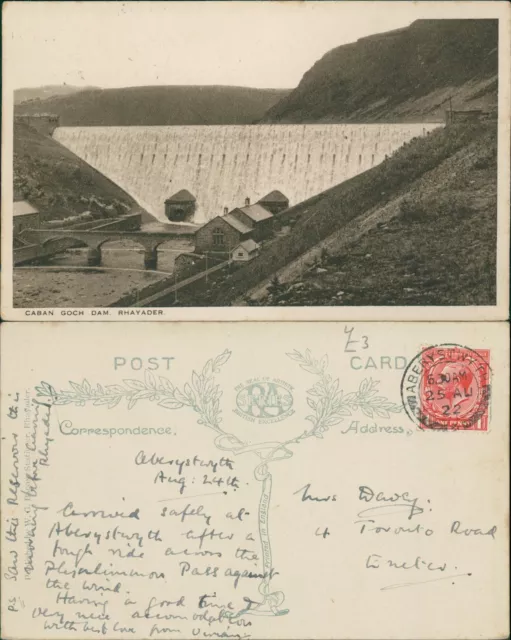 CABAN GOCH DAM. RHAYADER.
£3
POST CARD
Correspondence.
Address.
ABERYSTWYTH
6.30AM
25 AU
22
Aberystwyth
Aug: 24th.
Arrived safely at
Aberystwyth after a
tough ride across the
Pass against
the wind.
Having a good time &
very nice
with best love from
P.S. Saw this Reservoir this
morning before leaving
Rhayader
Mrs Davey.
4 Toronto Road
Exeter.